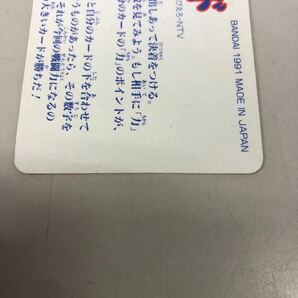 BANDAI 1991 MADE IN JAPAN
ぴえろ・NTV
出しあって決着をつける。
を見てみよう。もし相手に「力」
分のカードの「力」のポイントが、
と自分のカードの下を合わせて
うものがあったら、その数字を
それが今回の戦闘力になるの
大きいカードが勝ちだ！